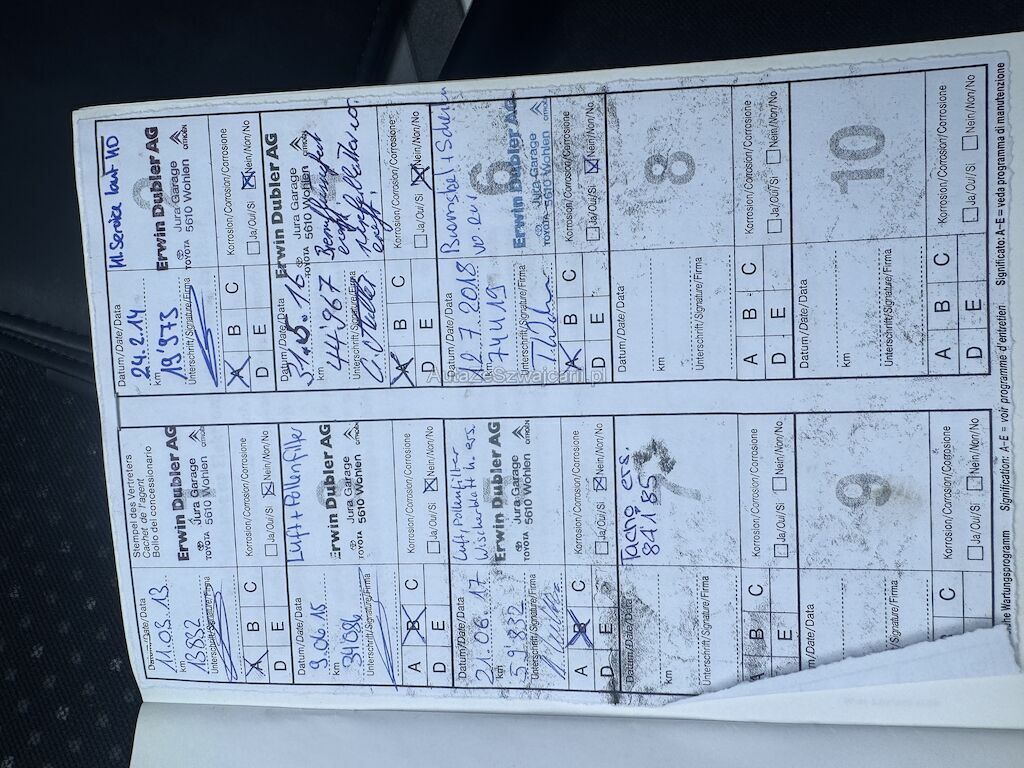 Stempel des Vertreters
Cachet de l'agent
Bollo del concessionario
Datum/Date/Data
11.03.13
km
15832
Unterschrift/Signature/Firma
Erwin Dubler AG
Jura Garage
TOYOTA 5610 Wohlen CITROËN
A B C
D E
Korrosion/Corrosion/Corrosione
Ja/Oui/Si Nein/Non/No
Kl. Service laut MD
Datum/Date/Data
24.2.14
km
19'973
Unterschrift/Signature/Firma
Erwin Dubler AG
Jura Garage
TOYOTA 5610 Wohlen CITROËN
A B C
D E
Korrosion/Corrosion/Corrosione
Ja/Oui/Si Nein/Non/No
Luft + Pollenfilter
Datum/Date/Data
9.06.15
km
34086
Unterschrift/Signature/Firma
Erwin Dubler AG
Jura Garage
TOYOTA 5610 Wohlen CITROËN
A B C
D E
Korrosion/Corrosion/Corrosione
Ja/Oui/Si Nein/Non/No
Datum/Date/Data
km
44'967
Unterschrift/Signature/Firma
Erwin Dubler AG
Jura Garage
TOYOTA 5610 Wohlen
A B C
D E
Korrosion/Corrosion/Corrosione
Ja/Oui/Si Nein/Non/No
Luft Pollenfilter
Wischerblatt h. ers.
Datum/Date/Data
21.06.17
km
59'832
Unterschrift/Signature/Firma
Erwin Dubler AG
Jura Garage
TOYOTA 5610 Wohlen CITROËN
A B C
D E
Korrosion/Corrosion/Corrosione
Ja/Oui/Si Nein/Non/No
6
Datum/Date/Data
12.7.2018
km
74419
Unterschrift/Signature/Firma
Erwin Dubler AG
Jura-Garage
TOYOTA 5610 Wohlen
A B C
D E
Korrosion/Corrosion/Corrosione
Ja/Oui/Si Nein/Non/No
7
Tacho ers.
84'185
Datum/Date/Data
km
Unterschrift/Signature/Firma
A B C
E
Korrosion/Corrosion/Corrosione
Ja/Oui/Si Nein/Non/No
8
Datum/Date/Data
km
Unterschrift/Signature/Firma
A B C
D E
Korrosion/Corrosion/Corrosione
Ja/Oui/Si Nein/Non/No
9
Datum/Date/Data
km
Unterschrift/Signature/Firma
C
Korrosion/Corrosion/Corrosione
Ja/Oui/Si Nein/Non/No
10
Datum/Date/Data
km
Unterschrift/Signature/Firma
A B C
D E
Korrosion/Corrosion/Corrosione
Ja/Oui/Si Nein/Non/No
he Wartungsprogramm Signification: A–E = voir programme d'entretien Significato: A–E = veda programma di manutenzione
AutazeSzwajcarii.pl